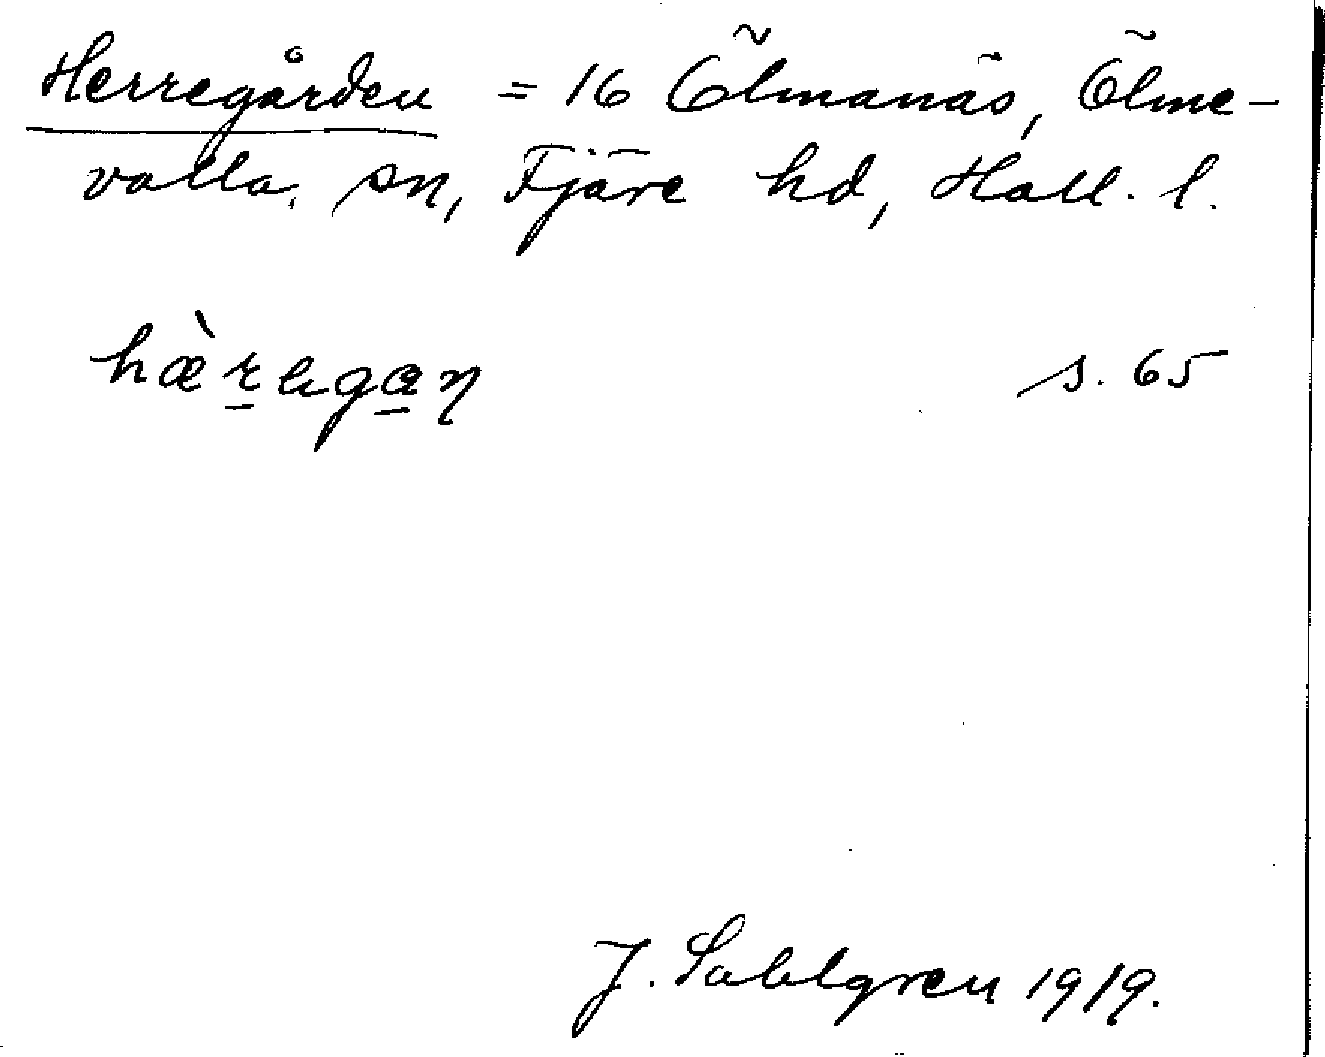 Herregården = 16 Ölmanäs, Ölme-
valla sn, Fjäre hd, Hall. l.
hæ̀r̲ega̲ŋ s. 65
J. Sahlgren 1919.